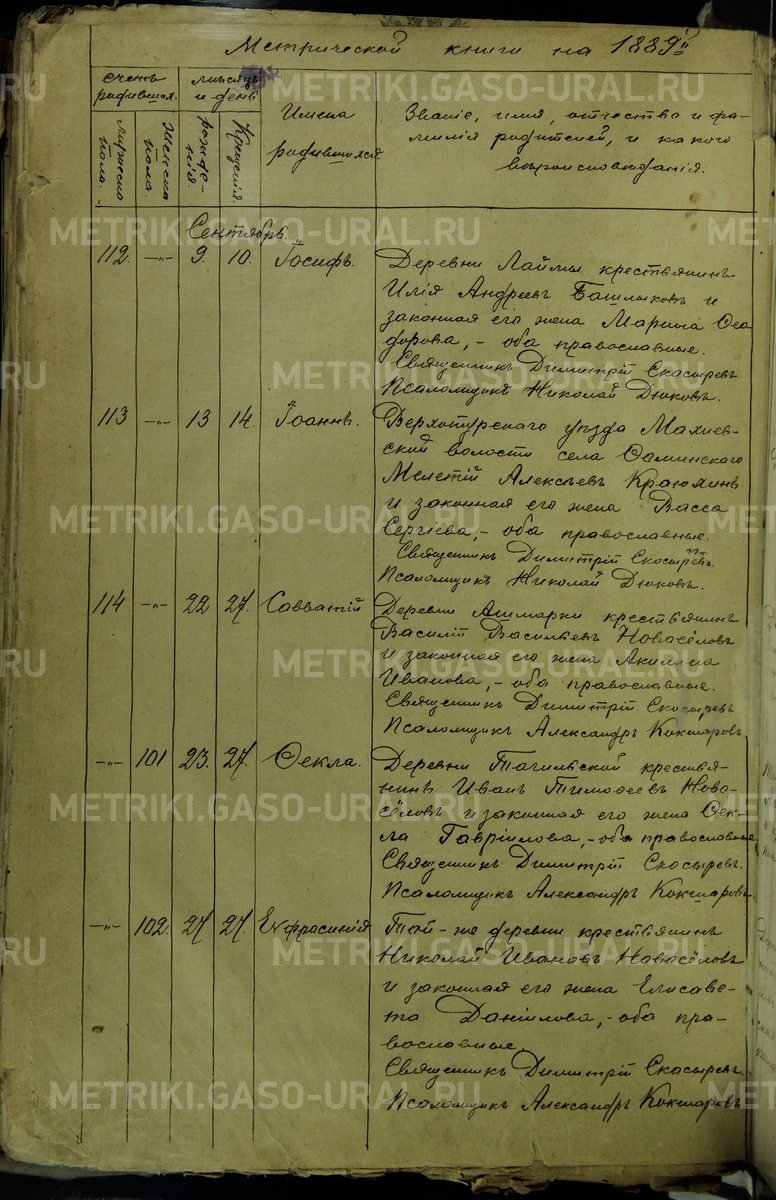 Метрической книги на 1889й
счетъ родившихся.
мужеска пола.
женска пола.
мѣсяцъ и день
рожде-
нія.
Крещенія.
Имена
родившихся
Званіе, имя, отчество и фа-
милія родителей, и какого
вѣроисповѣданія.
Сентябрь.
112. —"— 9. 10. Іосифъ.
Деревни Лаймы крестьянинъ
Илія Андреевъ Башлыковъ и
законная его жена Марина Ѳео
дорова, - оба православные.
Священникъ Димитрій Скосыревъ
Псаломщикъ Николай Дюковъ.
113 —"— 13 14. Іоаннъ.
Верхотурскаго уѣзда Махнев-
ской волости села Фоминскаго
Мелетій Алексѣевъ Краюхинъ
и законная его жена Васса
Сергіева, - оба православные.
Священникъ Димитрій Скосыревъ.
Псаломщикъ Николай Дюковъ.
114 —"— 22 27. Савватій
Деревни Ашмарки крестьянинъ
Василій Васильевъ Новосёловъ
и законная его жена Акилина
Иванова, - оба православные.
Священникъ Димитрій Скосыревъ
Псаломщикъ Александръ Кокшаровъ
—"— 101 23. 27. Ѳекла.
Деревни Тагильской крестья-
нинъ Иванъ Тимоѳеевъ Ново-
сёловъ и законная его жена Ѳек-
ла Гавріилова, - оба православные
Священникъ Димитрій Скосыревъ.
Псаломщикъ Александръ Кокшаровъ
—"— 102. 27 27. Евфросинія
Той-же деревни крестьянинъ
Николай Ивановъ Новосёловъ
и законная его жена Елисаве-
та Даніилова, - оба пра-
вославные.
Священникъ Димитрій Скосыревъ.
Псаломщикъ Александръ Кокшаровъ
METRIKI.GASO-URAL.RU